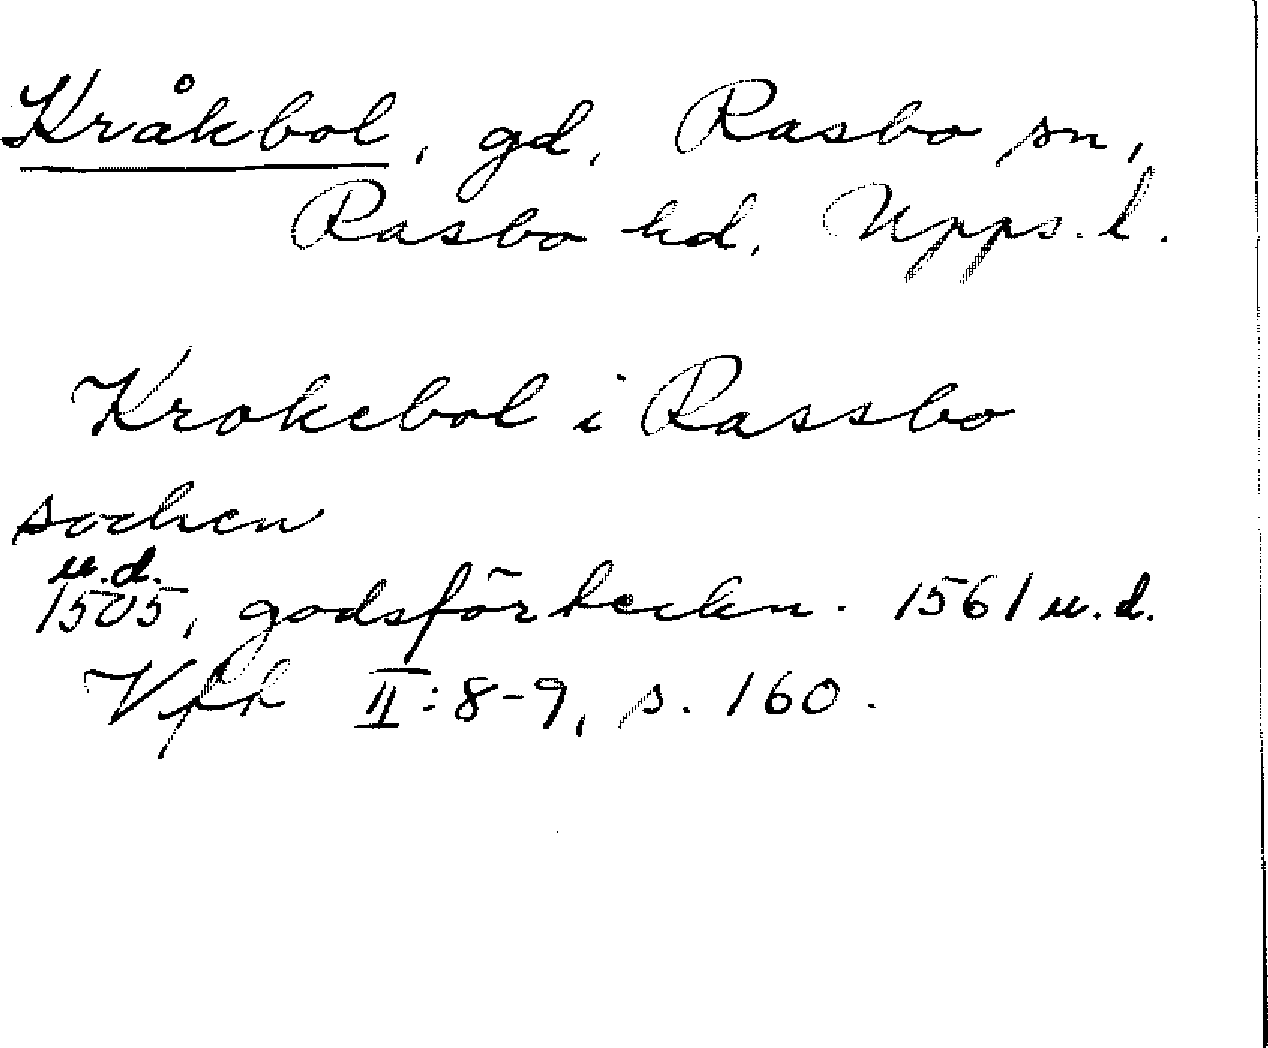 Kråkbol, gd, Rasbo sn,
Rasbo hd, Upps. l.
Krokebol i Rassbo
sochen
u.d.
1505, godsförteckn. 1561 u.d.
Vfh II:8-9, s. 160.